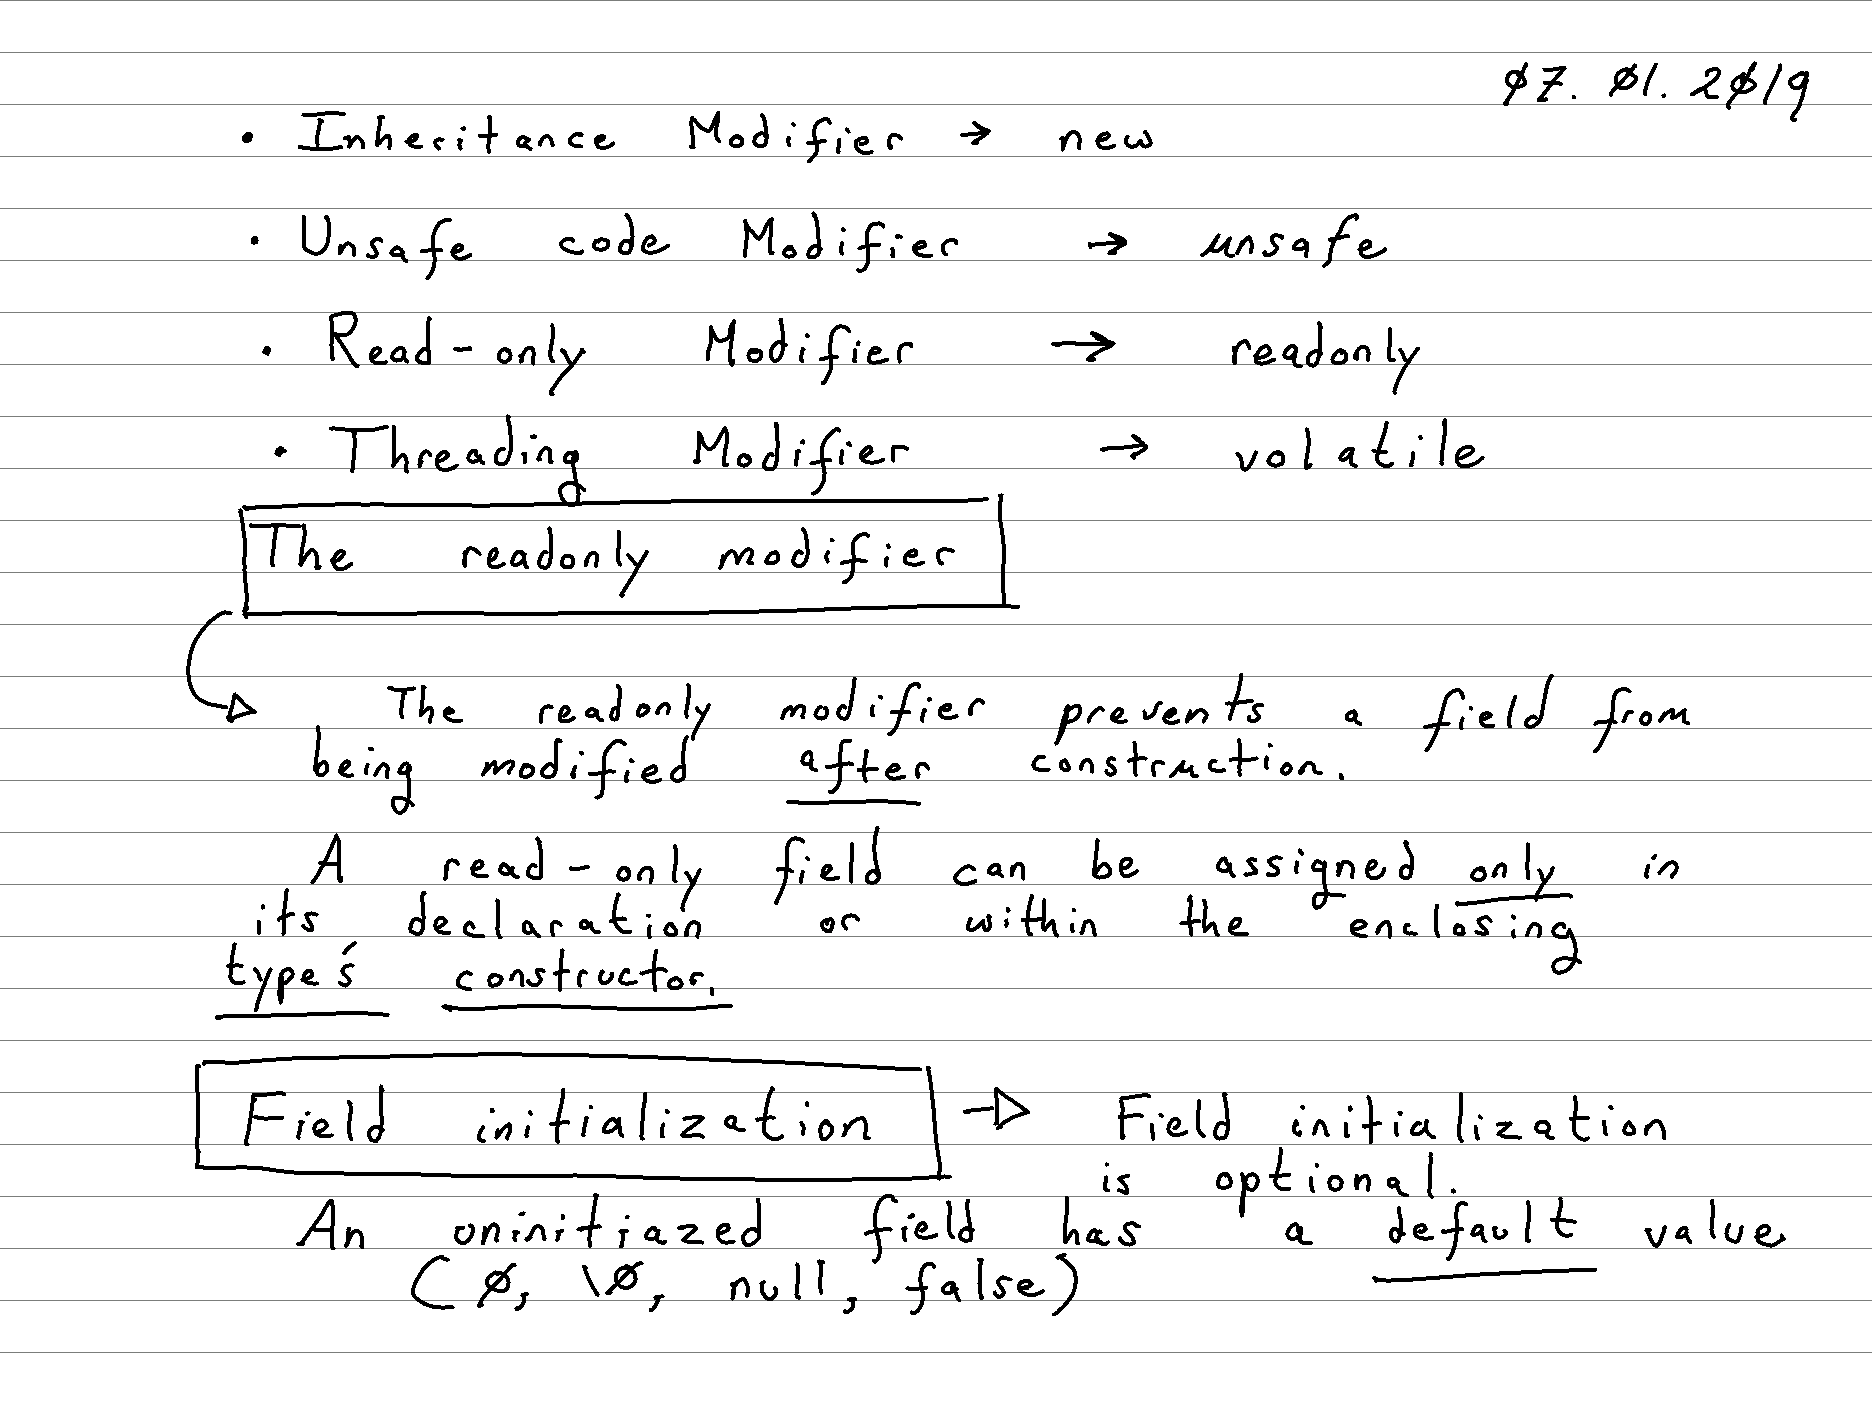 07. 01. 2019
• Inheritance Modifier → new
• Unsafe code Modifier → unsafe
• Read-only Modifier → readonly
• Threading Modifier → volatile
The readonly modifier
The readonly modifier prevents a field from
being modified after construction.
A read-only field can be assigned only in
its declaration or within the enclosing
type's constructor.
Field initialization → Field initialization
is optional.
An uninitiazed field has a default value
(0, \0, null, false)